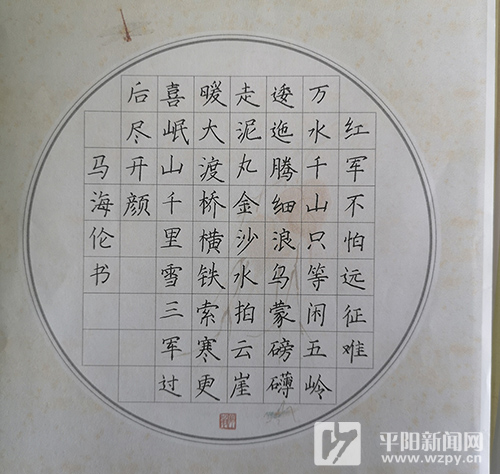 红军不怕远征难
万水千山只等闲五岭
逶迤腾细浪乌蒙磅礴
走泥丸金沙水拍云崖
暖大渡桥横铁索寒更
喜岷山千里雪三军过
后尽开颜
马海伦书
平阳新闻网
www.wzpy.cn